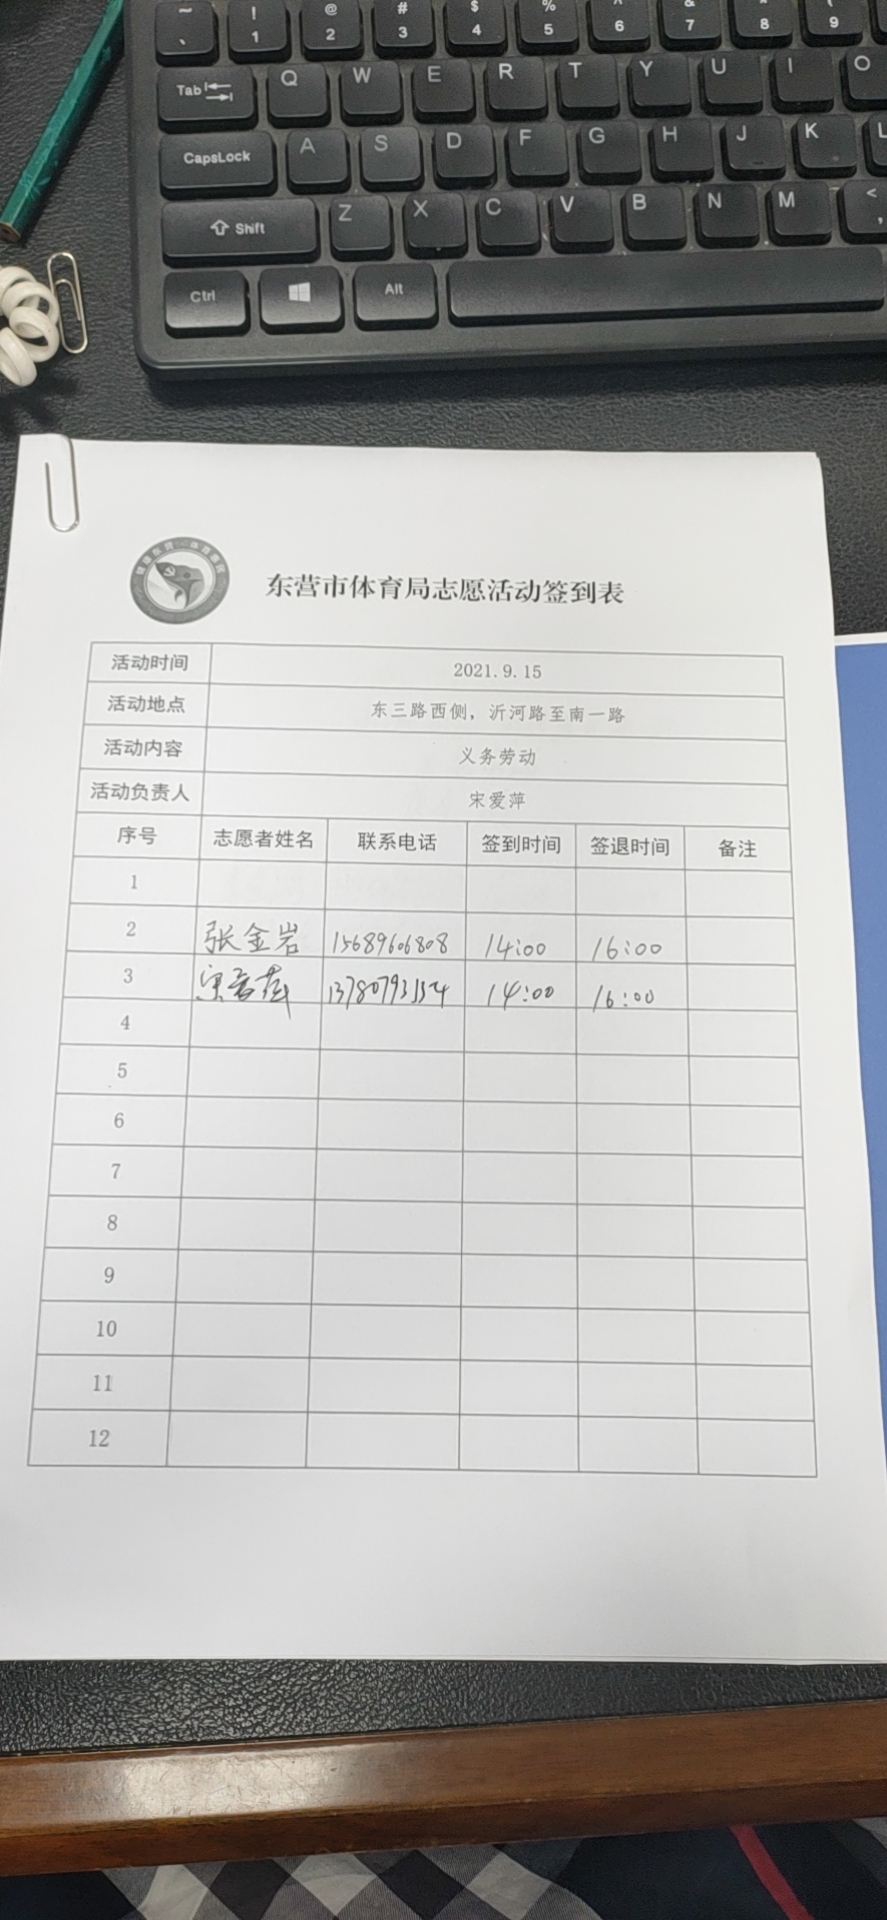 ~ ! @ # $ % ^ & * (
、 1 2 3 4 5 6 7 8 9
Tab Q W E R T Y U I O
CapsLock A S D F G H J K L
Shift Z X C V B N M <
,
Ctrl Alt
东营市体育局志愿活动签到表
活动时间 2021.9.15
活动地点 东三路西侧，沂河路至南一路
活动内容 义务劳动
活动负责人 宋爱萍
序号 志愿者姓名 联系电话 签到时间 签退时间 备注
1
2 张金岩 15689606808 14:00 16:00
3 宋爱萍 14:00 16:00
4
5
6
7
8
9
10
11
12